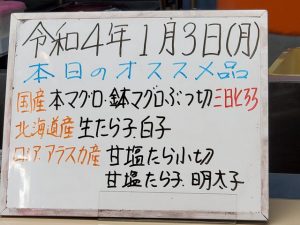 令和4年1月3日(月)
本日のオススメ品
国産 本マグロ・鉢マグロぶつ切
北海道産 生たら子、白子
ロシア・アラスカ産 甘塩たら小切
甘塩たら子、明太子